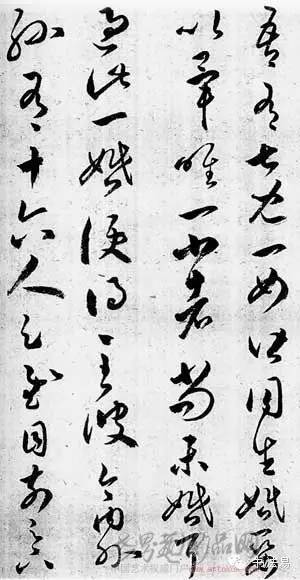 吾有七兒一女皆同生婚娶
以畢唯一小者尚未婚耳
過此一婚便得至彼今內外
孫有十六人足慰目前足下
书法易